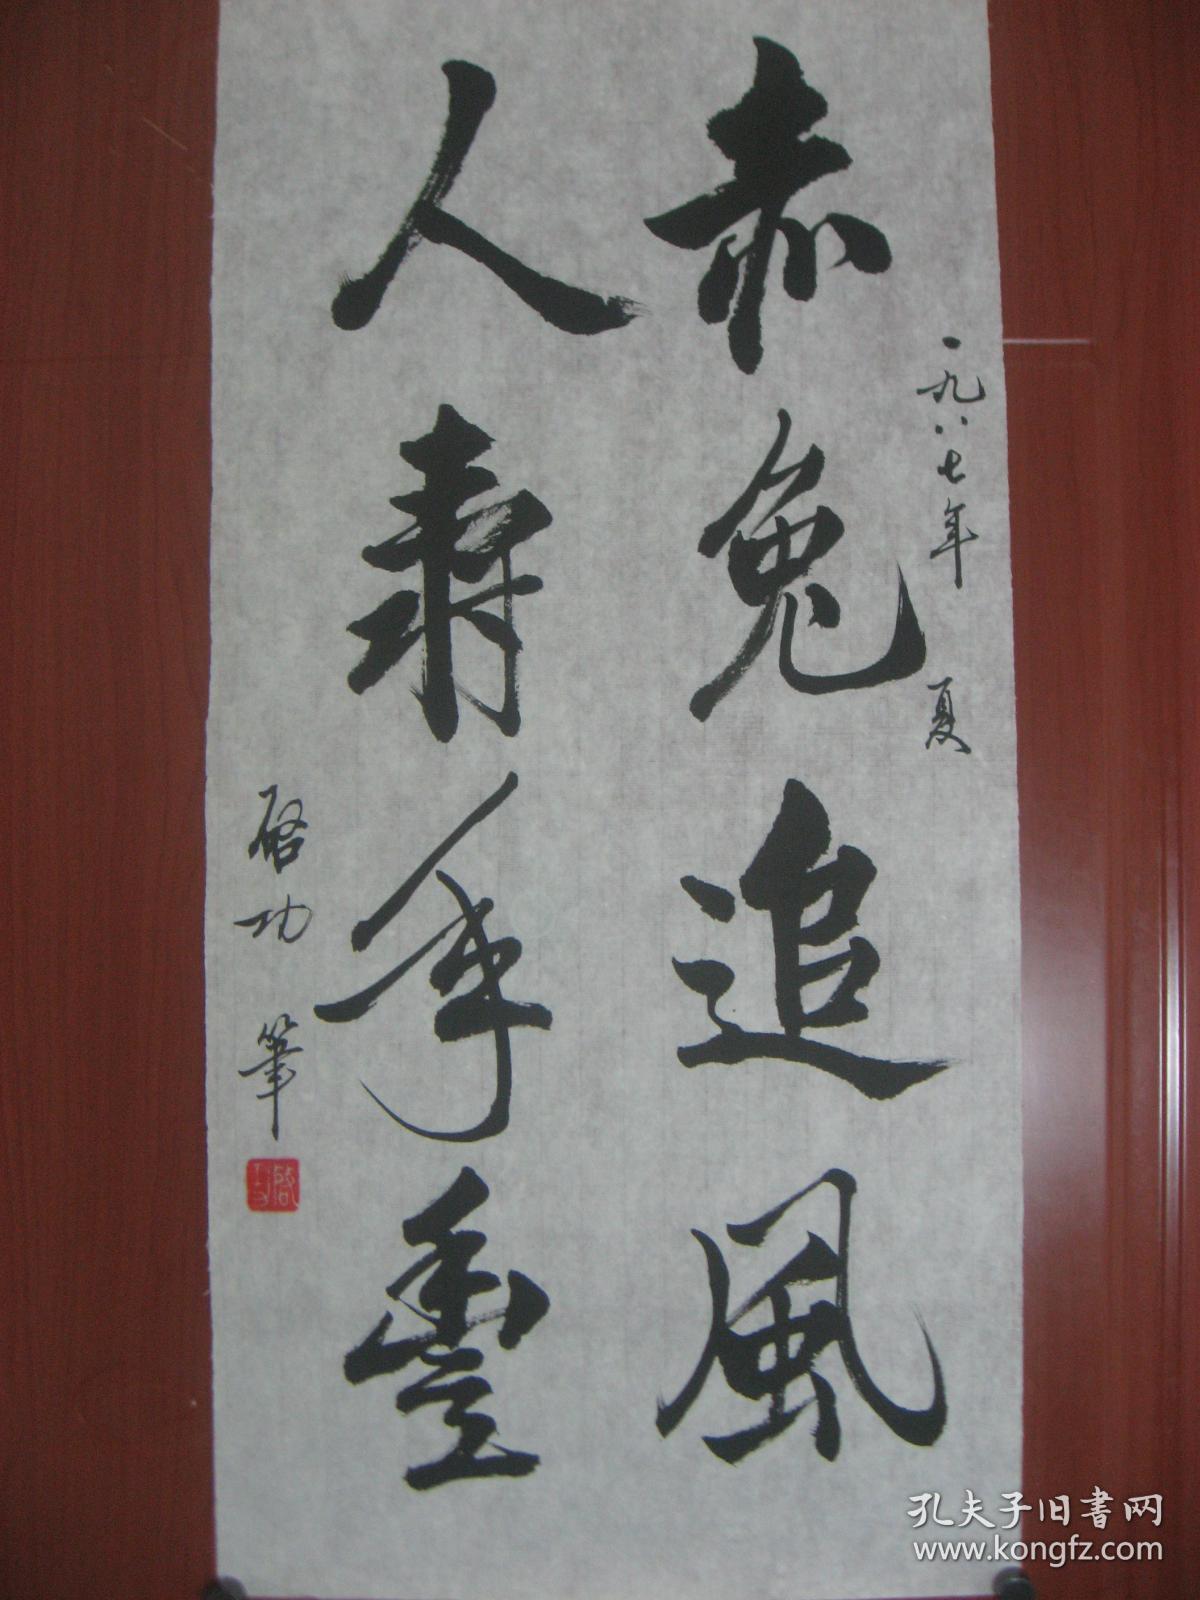 一九八七年 夏
赤兔追風
人壽年豐
啓功 筆
孔夫子旧書网
www.kongfz.com